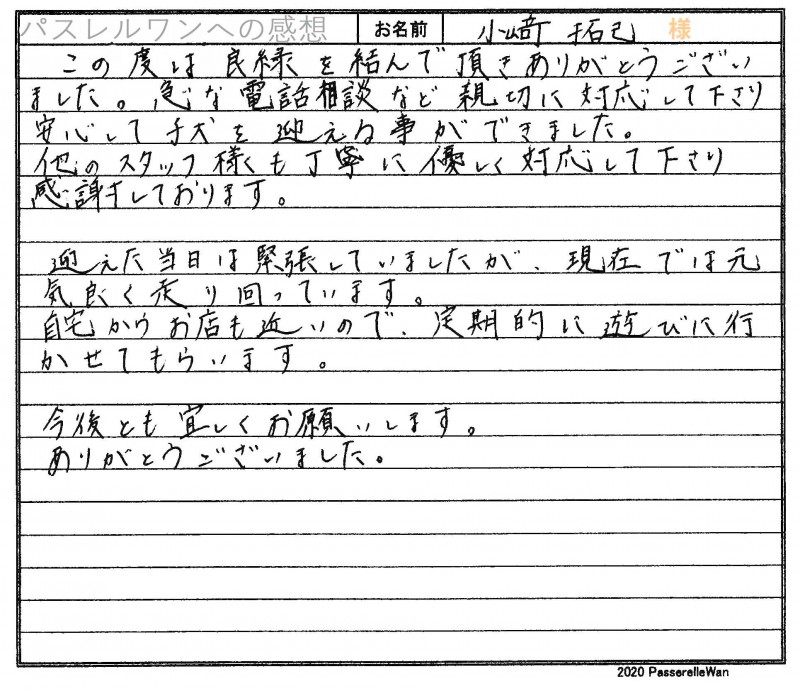 パスレルワンへの感想 お名前 小﨑 拓己 様
この度は良縁を結んで頂きありがとうござい
ました。急な電話相談など親切に対応して下さり
安心して子犬を迎える事ができました。
他のスタッフ様も丁寧に優しく対応して下さり
感謝しております。
迎えた当日は緊張していましたが、現在では元
気良く走り回っています。
自宅からお店も近いので、定期的に遊びに行
かせてもらいます。
今後とも宜しくお願いします。
ありがとうございました。
2020 PasserelleWan